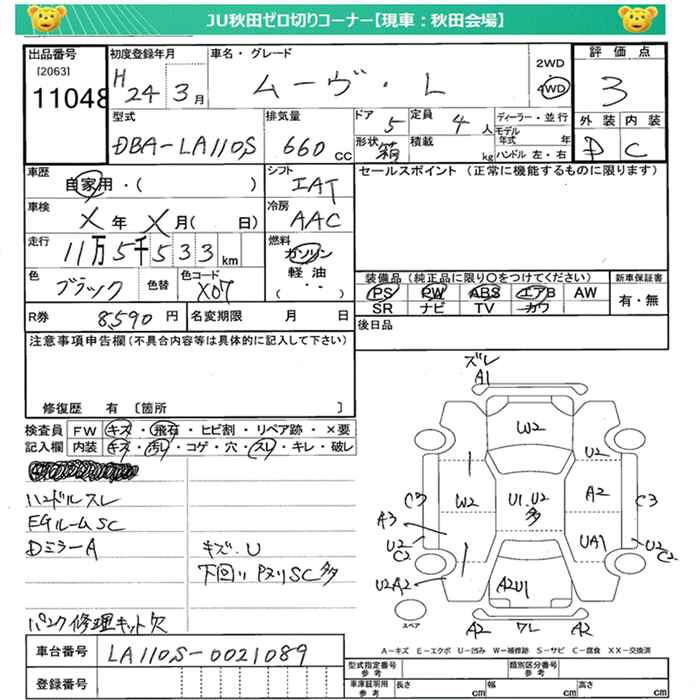 JU秋田ゼロ切りコーナー【現車：秋田会場】
出品番号
[2063]
11048
初度登録年月
H 24 3月
車名・グレード
ムーヴ・L
2WD
4WD
評価点
3
外装 内装
D C
型式
DBA-LA110S
排気量
660 cc
ドア 5
定員 4 人
形状 箱
積載 kg
ディーラー・並行
モデル年式 年
ハンドル 左・右
車歴
自家用・( )
シフト
IAT
車検
X年 X月( 日)
冷房
AAC
走行
11万5千533km
燃料
ガソリン
軽油
(・・)
色
ブラック
色替
色コード
X07
セールスポイント (正常に機能するものに限ります)
装備品(純正品に限り〇をつけてください)
PS PW ABS エアB AW
SR ナビ TV カワ
新車保証書
有・無
R券 8590 円
名変期限 月 日
後日品
注意事項申告欄(不具合内容等は具体的に記入して下さい)
修復歴 有 〔箇所 〕
検査員記入欄
FW キズ・飛石・ヒビ割・リペア跡・×要
内装 キズ・汚レ・コゲ・穴・スレ・キレ・破レ
ハンドルスレ
EgルームSC
DミラーA
キズ・U
下回り PヌリSC多
パンク修理キット欠
ズレ
A1
W2
U2
W2
U1.U2
多
A2
C3
C3
A3
U2
C2
UA1
U2
C2
U2A2
A2U1
スペア
A2 ワレ A2
A-キズ E-エクボ U-凹み W-補修跡 S-サビ C-腐食 XX-交換済
車台番号
LA110S-0021089
登録番号
型式指定番号
参考
類別区分番号
参考
車庫証明用
参考
長さ cm
幅 cm
高さ cm